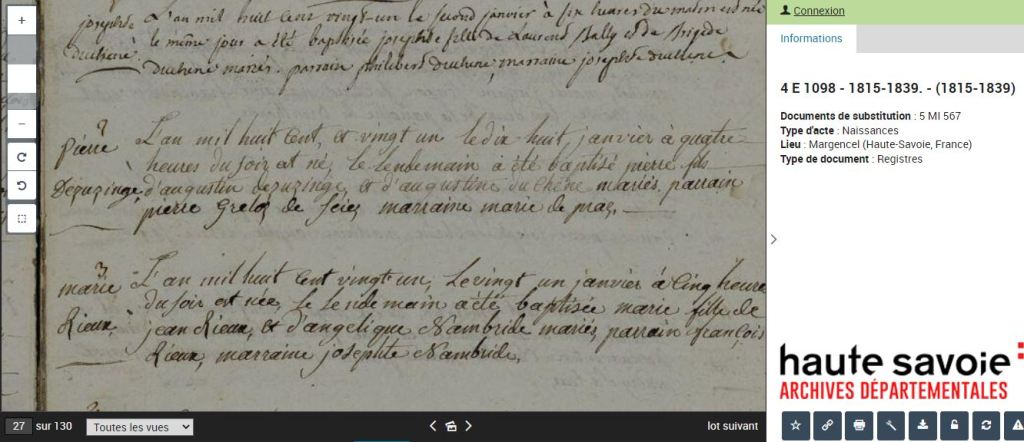 josephte L'an mil huit Cens vingt-un le second janvier à six heures du matin est née
le même jour a été baptisée josephte fille de Laurend Bally et de Brigide
duchene duchene mariés. parrain philibert duchene, marraine josephte duchene
2
pierre L'an mil huit Cent, et vingt un le dix huit, janvier à quatre
heures du soir est né, le lendemain a été baptisé pierre fils
d'augustin et d'augustine du Chêne mariés, parrain
pierre de marraine marie de praz.
3
marie L'an mil huit Cent vingt un, le vingt un janvier à Cinq heures
du soir est née, le lendemain a été baptisée marie fille de
Rieux, jean Rieux, et d'angelique Nambride mariés, parrain françois
Rieux, marraine josephte Nambride,
27 sur 130 Toutes les vues lot suivant
Connexion
Informations
4 E 1098 - 1815-1839. - (1815-1839)
Documents de substitution : 5 MI 567
Type d'acte : Naissances
Lieu : Margencel (Haute-Savoie, France)
Type de document : Registres
haute savoie
ARCHIVES DÉPARTEMENTALES